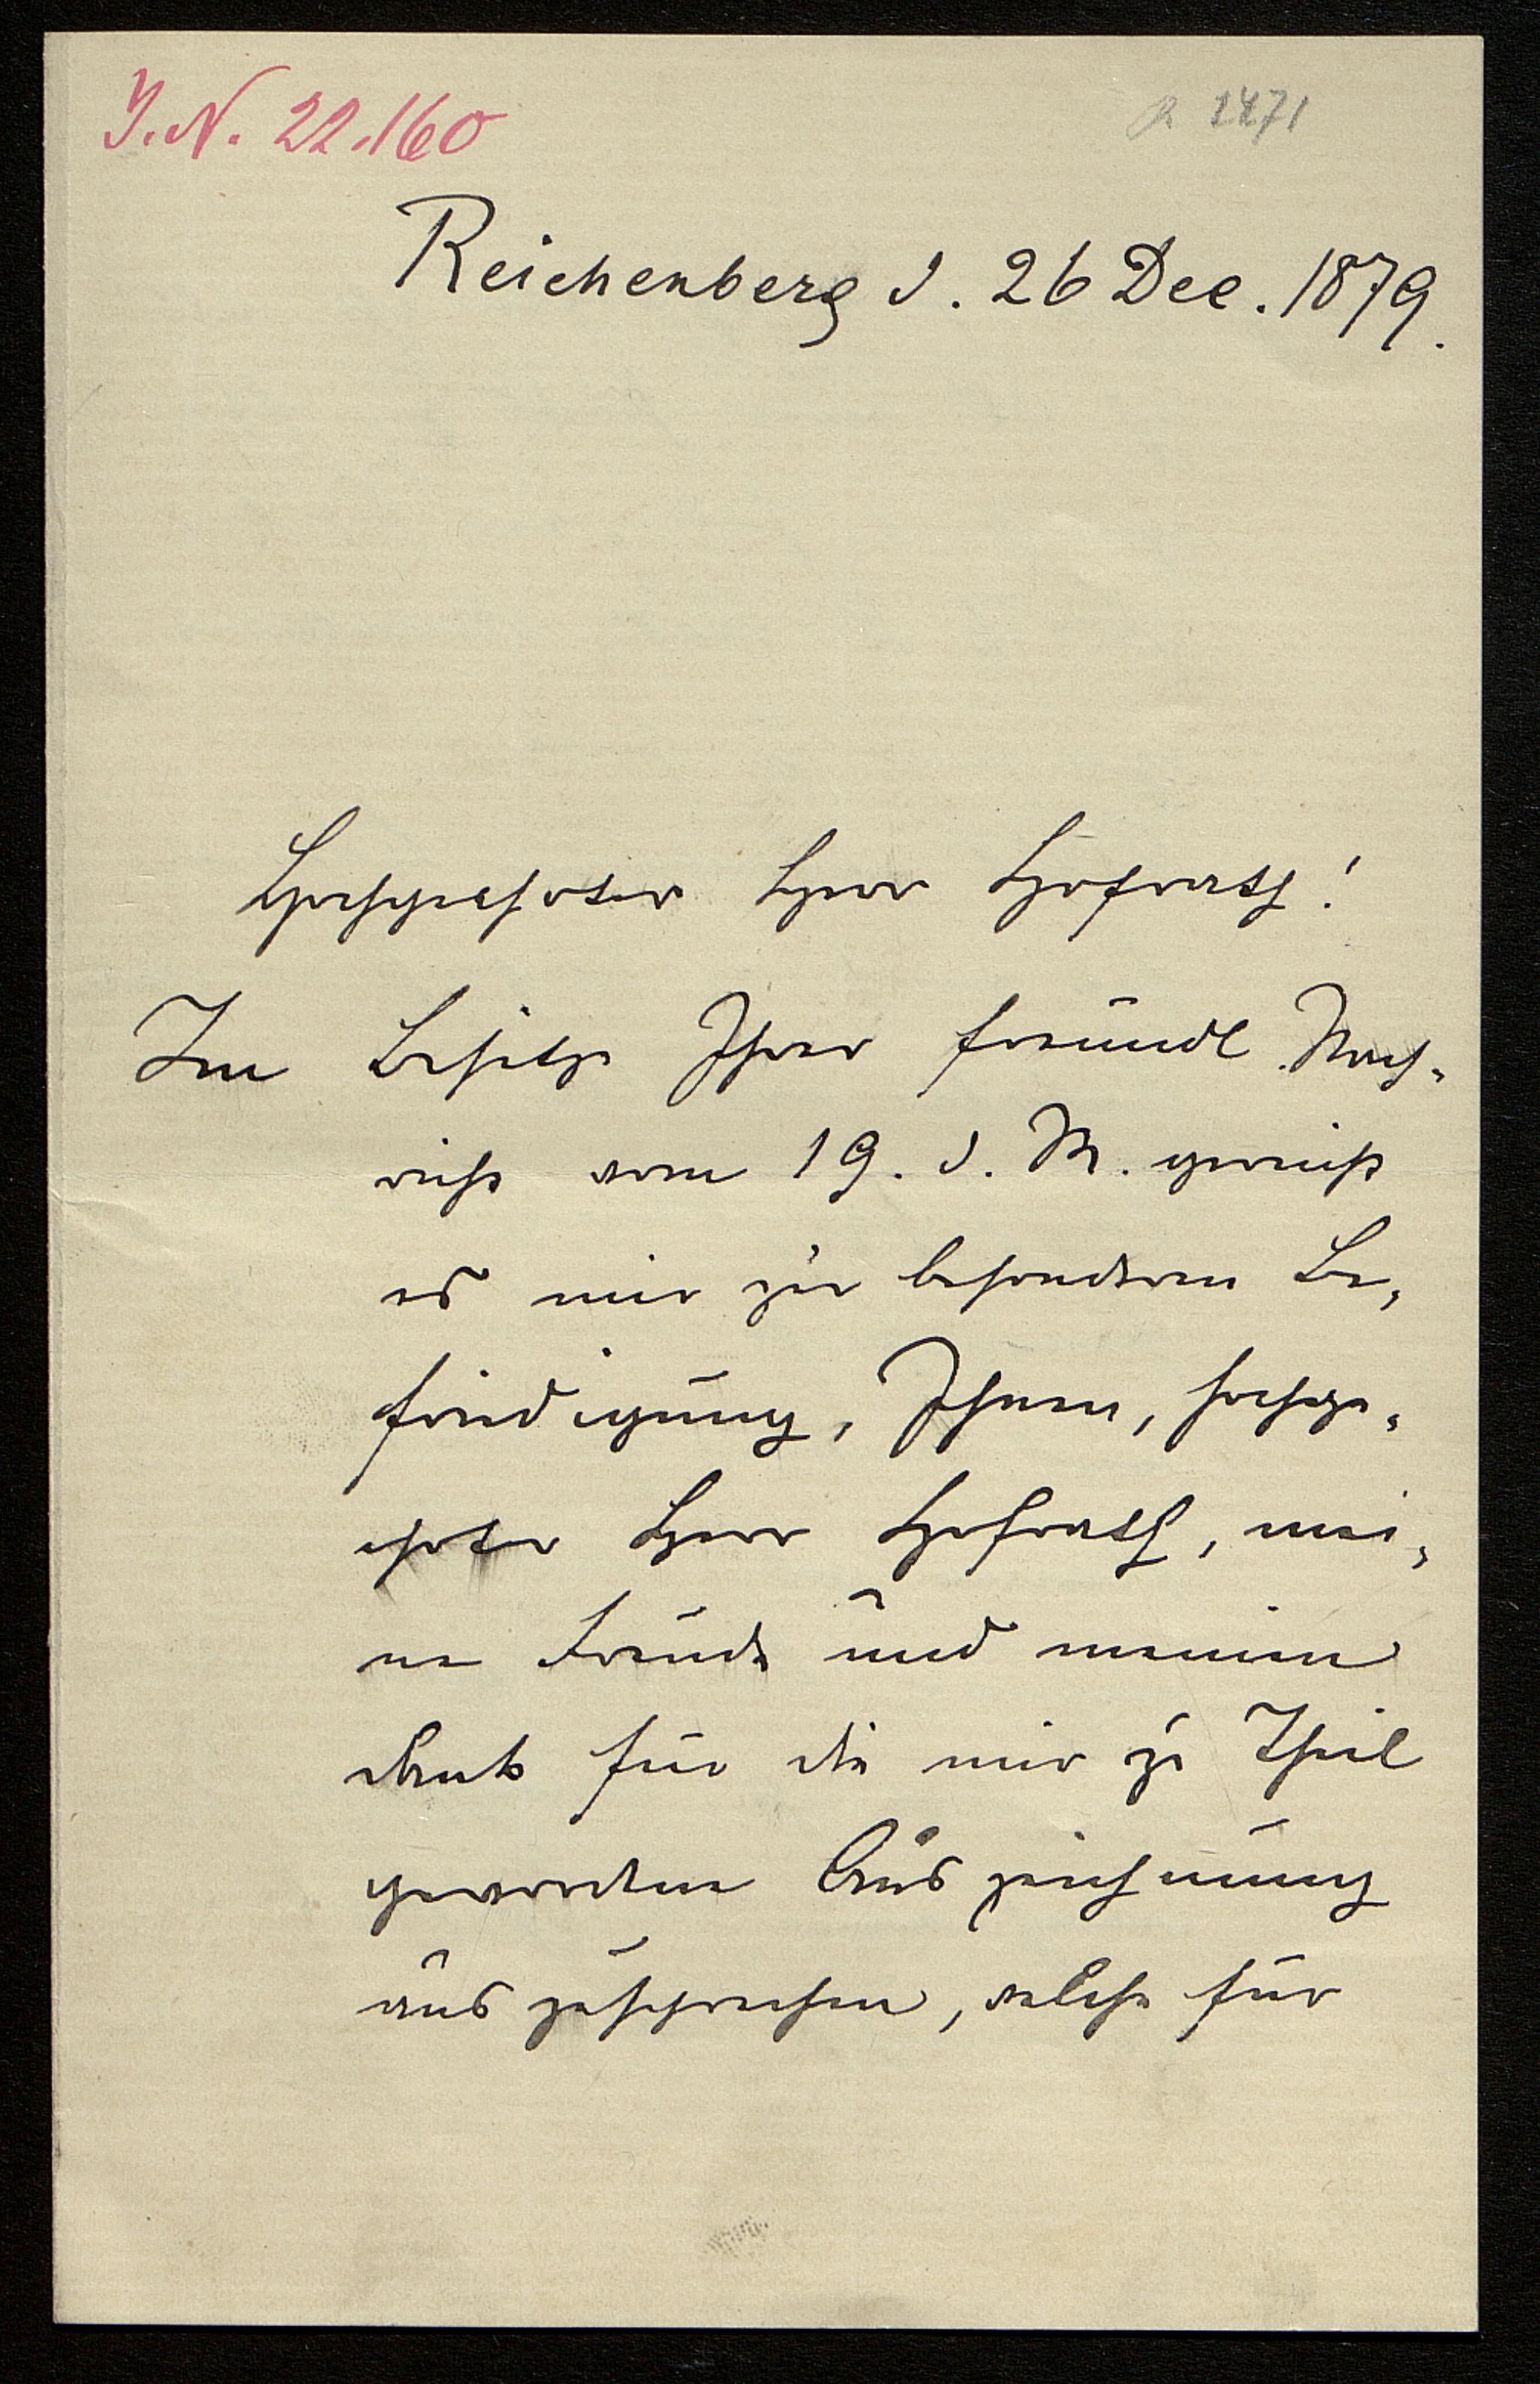 J. N. 22.160
2471
Reichenberg d. 26 Dec. 1879.
Hochgeehrter Herr Hofrath!
Im Besitze Ihrer freundl. Nach-
richt vom 19. d. M. gereicht
es mir zur besonderen Be-
friedigung, Ihnen, hochge-
ehrter Herr Hofrath, mei-
ne Freude und meinen
Dank für die mir zu Theil
gewordene Auszeichnung
auszusprechen, welche für